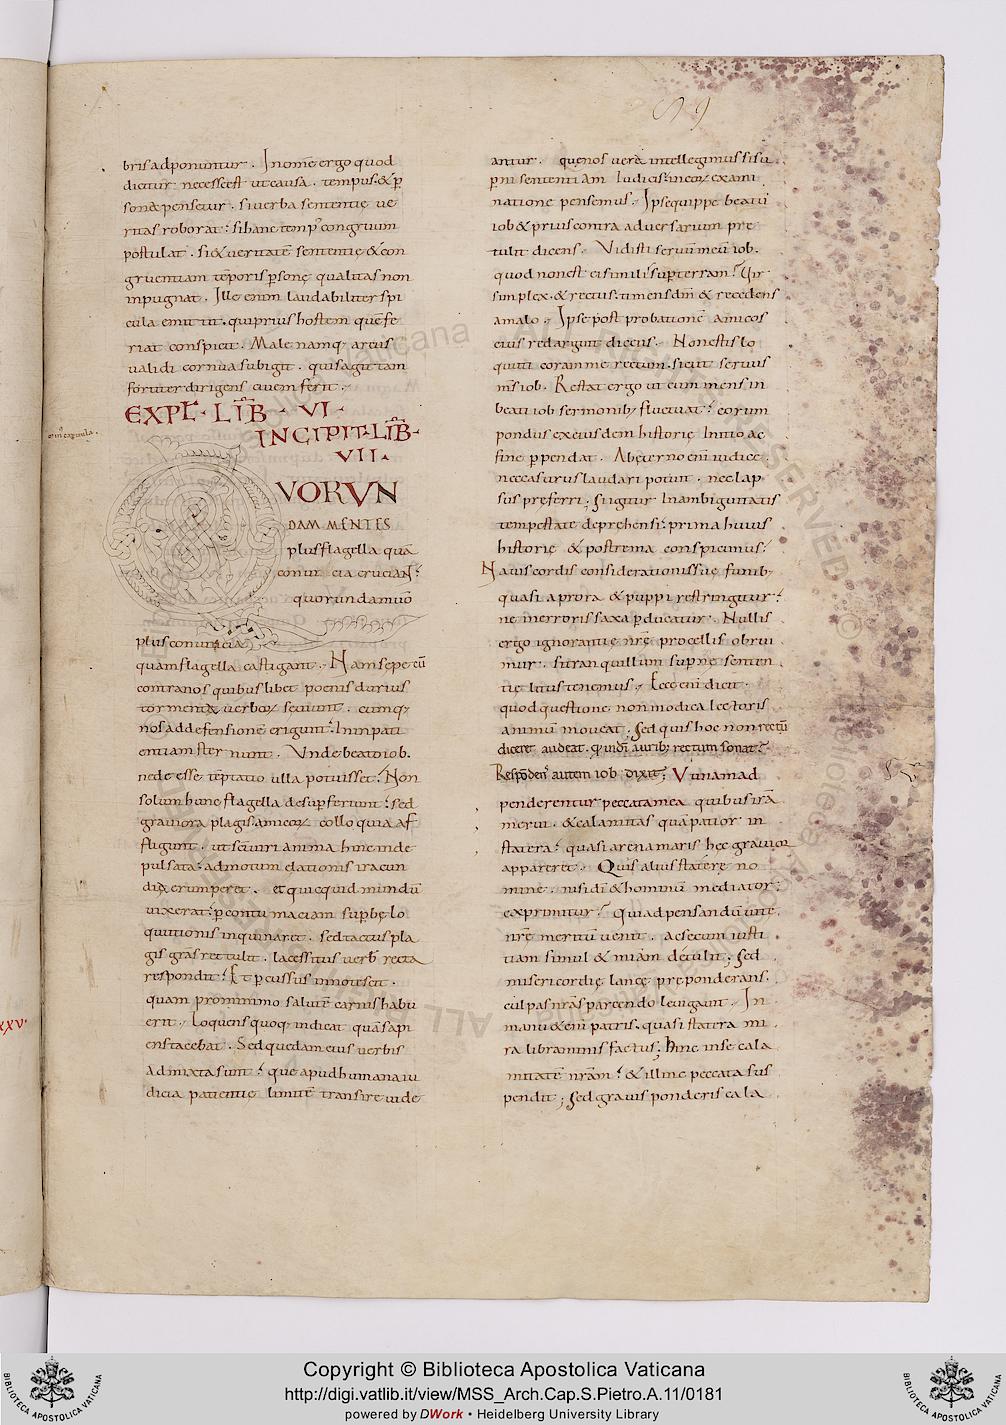 89
brisadponuntur. Inomīe ergo quod
dicitur necesseest utcausa. tempus.&p̄
sonapensetur. siuerba sententię ue
ritas roborat: sihanc temp' congruum
postulat. si&ueritatē sententię &con
gruentiam tēporis p̄sonę qualitas non
inpugnat. Ille enim laudabiliter spi
cula emittit. quiprius hostem quēfe
riat conspicit. Male namq; arcus
ualidi cornua subigit. quisagittam
fortiter dirigens ciuem ferit.
EXPL̄. LIB̄. VI.
INCIPIT. LIB̄.
VII.
QVORVN
DAM MENTES
plus flagella quā
conuitia cruciaN:
quorundam uō
plus conuitia
quamflagella castigant. Nam sępe cū
contranos quibuslibet poenis durius
tormenta uerboꝝ seuiunt. cumq;
nosaddefensionē erigunt: Ininpati
entiam sternunt. Vnde beato iob.
nede esse tēptatio ulla potuisset: Non
solum hunc flagella desup̄feriunt: sed
grauiora plagis.amicoꝝ colloquia af
fligunt. ut sc̄i uiri anima hincinde
pulsata: admotum elationis iracun
dia erumperet. et quicquid mundū
uixerat: p̄ contumaciam sup̄bę lo
quutionis inquinaret. sedtactus pla
gis gr̄as rettulit. lacessitus uerb' recta
respondit: Et p̄cussus innotescit.
quam prominimo salutē carnis habu
erit. Loquens quoq; indicat quāsapi
enstacebat. Sed quedam eius uerbis
admixta sunt: quę apud humana iu
dicia patientię limitē transire uide
antur. quęnos uera intellegimus si su
p̄ni sententiam Iudicis: ineoꝝ exami
natione pensemus. Ipsequippe beatū
iob&prius contra aduersarium prę
tulit dicens. Vidisti seruū meū iob.
quod nonest ei similis sup̄ terram: Vir
simplex.&rectus.timensdm̄ & recedens
amalo. Ipse post probationē amicos
eius redarguit dicens. Nonestislo
quuti coram me rectum.sicut seruus
ms̄ iob. Restat ergo ut cum mens in
beati iob sermonib; fluctuat: eorum
pondus exeiusdem historię Initio ac
fine p̄pendat. Ab ęterno enī iudice:
neccasurus laudari potuit. neclap
sus pręferri; Si igitur Inambiguitatis
tempestate deprehensi: prima huius
historię & postrema conspicimus:
Nauis cordis considerationis suę funib;
quasi aprora & puppi restringitur:
ne inerroris saxa p̄ducatur. Nullis
ergo ignorantię nr̄ę procellis obrui
mur. si tranquillum sup̄nę senten
tię litus tenemus. Ecce enī dicit.
quod questione non modica lectoris
animū moueat; Sed quis hoc non rectū
dicere audeat. quod in dī aurib; rectum sonat:
Respondens autem iob dixit; Vtinam ad
penderentur peccata mea quibus irā
merui. &calamitas quā patior in
statera: quasi arenamaris hęc grauior
appareret. Quis alius staterę no
mine. nisi dī &hominū mediator:
exprimitur: Qui ad pensandū uitę
nrę meritū uenit. Ac secum iusti
tiam simul & miam detulit; Sed
misericordię lance preponderans.
culpas nr̄as parcendo leuigauit. In
manu & enī patris. quasi statera mi
ra libraminis factus; Hinc inse cala
mitatē nr̄am: & illinc peccata sus
pendit; Sed grauis ponderis cala
xxv.
Copyright © Biblioteca Apostolica Vaticana
http://digi.vatlib.it/view/MSS_Arch.Cap.S.Pietro.A.11/0181
powered by DWork • Heidelberg University Library
BIBLIOTECA APOSTOLICA VATICANA
BIBLIOTECA APOSTOLICA VATICANA